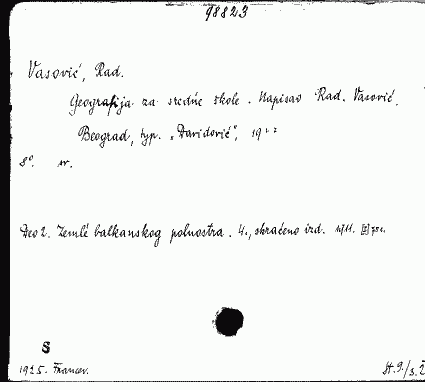 98823
Vasović, Rad.
Geografija za srednje škole. Napisao Rad. Vasović.
Beograd, typ. „Davidović“, 19
8°. sv.
Deo 2. Zemlě balkanskog poluostra. 4., skraćeno izd. 1911.
S
1925. Francev.